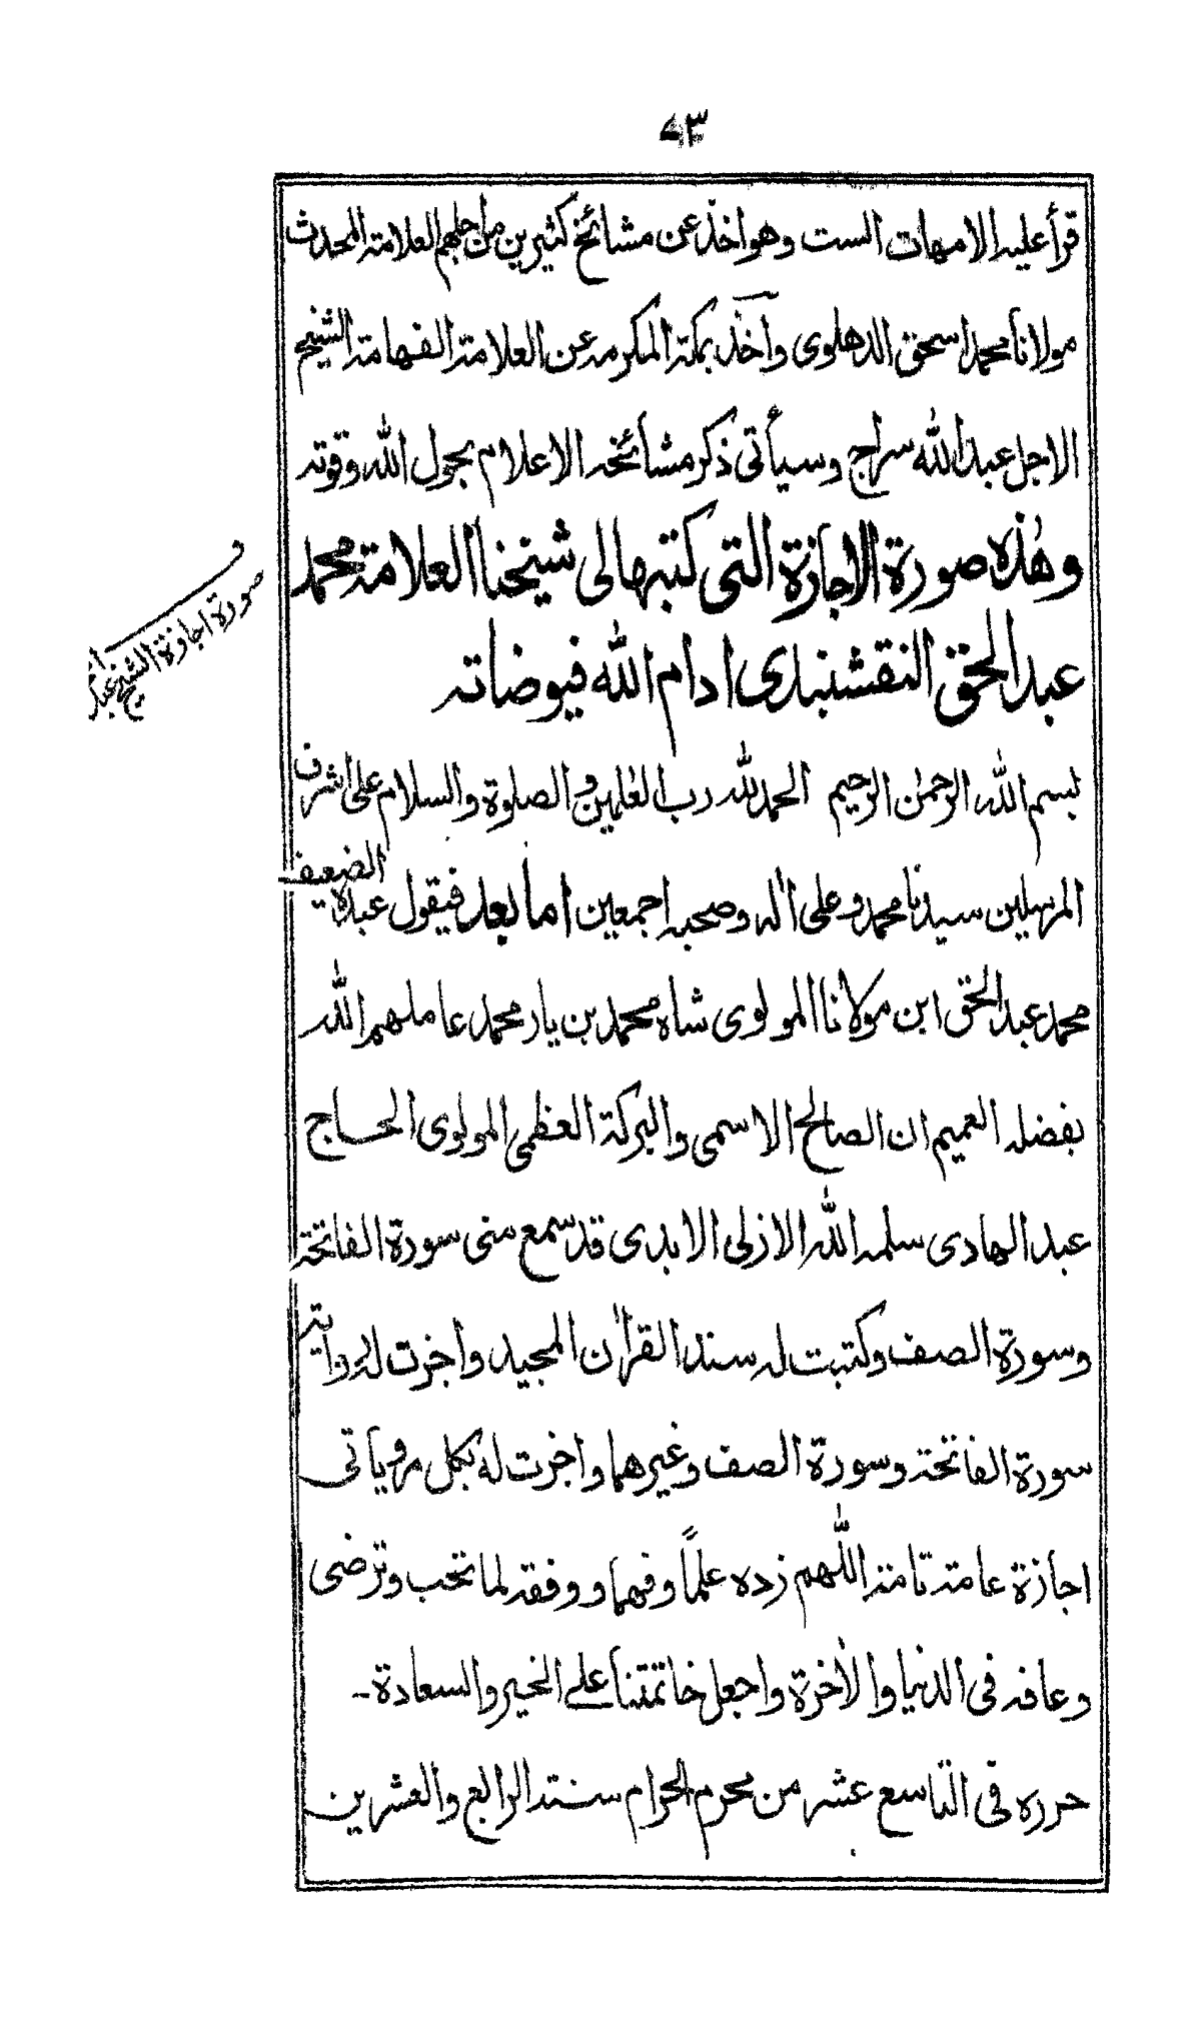 قرأ عليه الامهات الست وهو اخذ عن مشائخ كثيرين من اجلهم العلامة المحدث
مولانا محمد اسحق الدهلوى وأخذ بمكة المكرمة عن العلامة الفهامة الشيخ
الاجل عبد الله سراج وسيأتى ذكر مشائخه الاعلام بحول الله وقوته
وهٰذه صورة الاجازة التى كتبها لى شيخنا العلامة محمد
عبد الحق النقشبندى ادام الله فيوضاته
صورة اجازة الشيخ
بسم الله الرحمٰن الرحيم الحمد لله رب العٰلمين و الصلوة والسلام على اشرف
المرسلين سيدنا محمد وعلى اٰله وصحبه اجمعين اما بعد فيقول عبده الضعيف
محمد عبد الحق ابن مولانا المولوى شاه محمد بن يار محمد عاملهم الله
بفضله العميم ان الصالح الاسمى والبركة العظمى المولوى الحاج
عبد الهادى سلمه الله الازلى الابدى قد سمع منى سورة الفاتحة
وسورة الصف وكتبت له سند القرأن المجيد واجزت له رواية
سورة الفاتحة وسورة الصف وغيرهما واجزت له بكل مروياتى
اجازة عامة تامة اللهم زده علمًا وفهما ووفقه لما تحب وترضى
وعافه فى الدنيا والاٰخرة واجعل خاتمتنا على الخير والسعادة-
حرره فى التاسع عشر من محرم الحرام سنة الرابع والعشرين